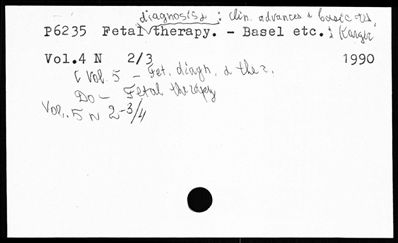 diagnosis & ; clin. advances & basic res.
P6235 Fetal therapy. - Basel etc.; Karger
Vol.4 N 2/3 1990
[ Vol. 5 - Fet. diagn. & ther.
Do - Fetal therapy
Vol. 5 N 2-3/4